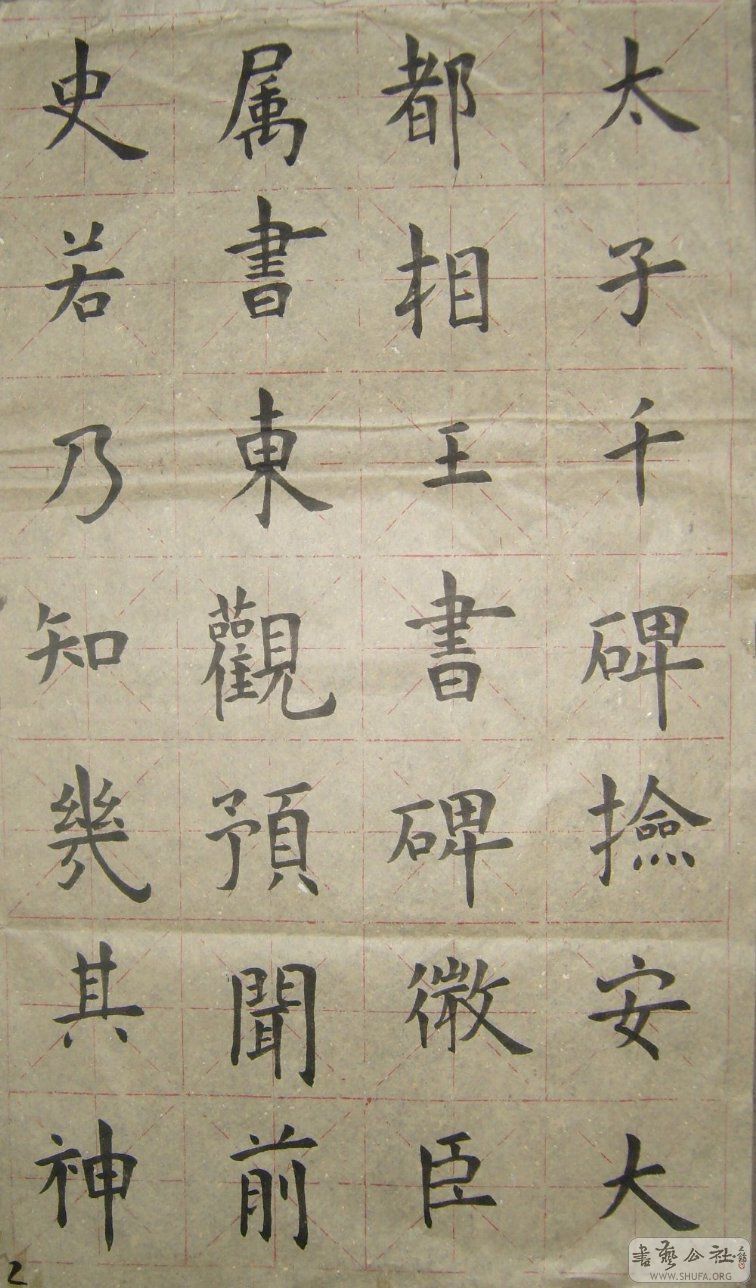 太子千碑撿安大
都相王書碑徵臣
属書東觀預聞前
史若乃知幾其神
2
書藝公社
WWW.SHUFA.ORG